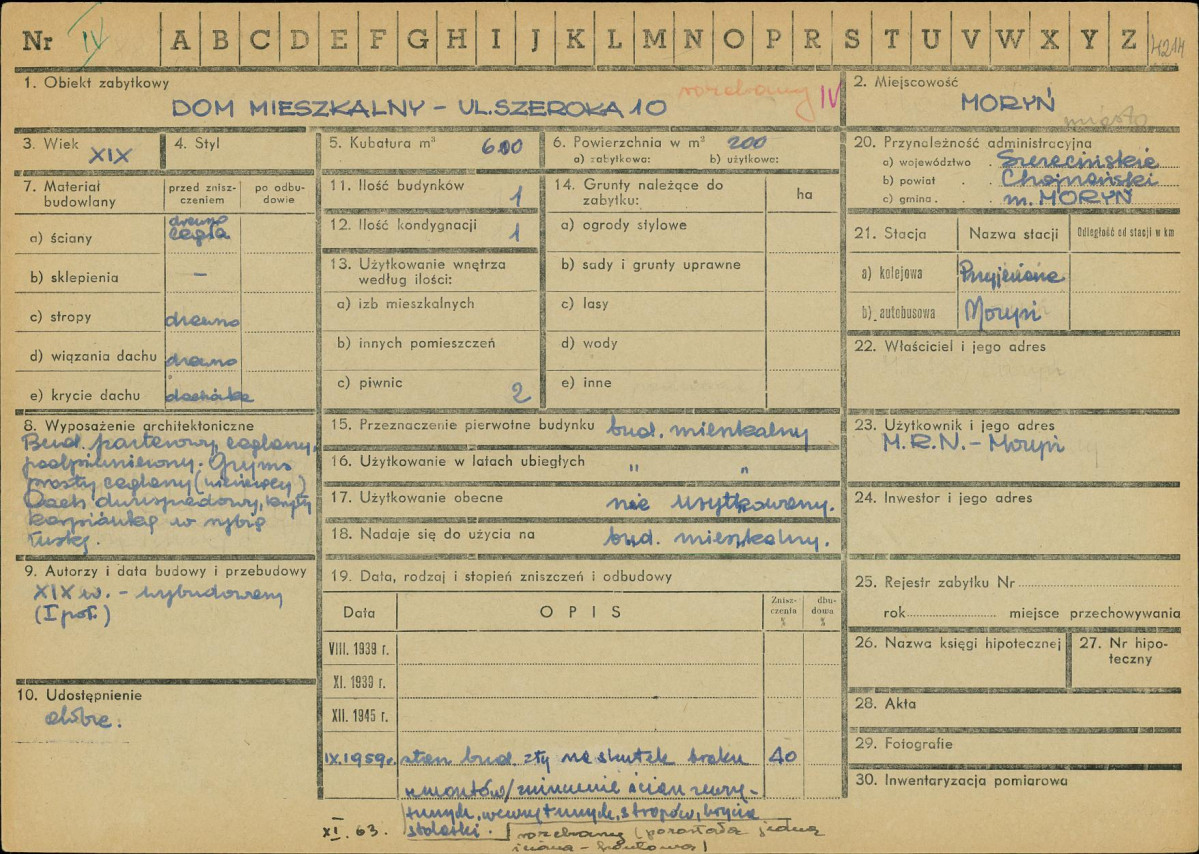 Nr IV A B C D E F G H I J K L M N O P R S T U V W X Y Z 4214
1. Obiekt zabytkowy
DOM MIESZKALNY - UL. SZEROKA 10
rozebrany IV
2. Miejscowość
MORYŃ
miasto
3. Wiek XIX
4. Styl
5. Kubatura m³ 600
6. Powierzchnia w m³ 200
a) zabytkowa: b) użytkowa:
20. Przynależność administracyjna
a) województwo . Szczecińskie
b) powiat . . Chojnański
c) gmina . . m. MORYŃ
7. Materiał budowlany
przed zniszczeniem
po odbudowie
a) ściany drewno cegła
b) sklepienia –
c) stropy drewno
d) wiązania dachu drewno
e) krycie dachu dachówka
11. Ilość budynków 1
12. Ilość kondygnacji 1
13. Użytkowanie wnętrza
według ilości:
a) izb mieszkalnych
b) innych pomieszczeń
c) piwnic 2
14. Grunty należące do
zabytku:
ha
a) ogrody stylowe
b) sady i grunty uprawne
c) lasy
d) wody
e) inne
21. Stacja Nazwa stacji Odległość od stacji w km
a) kolejowa Przyjezierze
b) autobusowa Moryń
22. Właściciel i jego adres
8. Wyposażenie architektoniczne
Bud. parterowy, ceglany,
podpiwniczony. Gzyms
prosty ceglany (wieńczący)
Dach dwuspadowy, kryty
karpiówką w rybią
łuskę.
15. Przeznaczenie pierwotne budynku bud. mieszkalny
16. Użytkowanie w latach ubiegłych " "
17. Użytkowanie obecne nie użytkowany.
18. Nadaje się do użycia na bud. mieszkalny.
23. Użytkownik i jego adres
M.R.N. - Moryń
24. Inwestor i jego adres
9. Autorzy i data budowy i przebudowy
XIX w. - wybudowany
(I poł.)
10. Udostępnienie
dobre.
19. Data, rodzaj i stopień zniszczeń i odbudowy
Data OPIS Zniszczenia % dbudowa %
VIII. 1939 r.
XI. 1939 r.
XII. 1945 r.
IX. 1959 r. stan bud. zły na skutek braku 40
remontów/zniszczenie ścian zewnę-
trznych, wewnętrznych, stropów, krycia
stolarki.
XI. 63. rozebrany (pozostała jedna
ściana - frontowa)
25. Rejestr zabytku Nr
rok miejsce przechowywania
26. Nazwa księgi hipotecznej
27. Nr hipoteczny
28. Akta
29. Fotografie
30. Inwentaryzacja pomiarowa